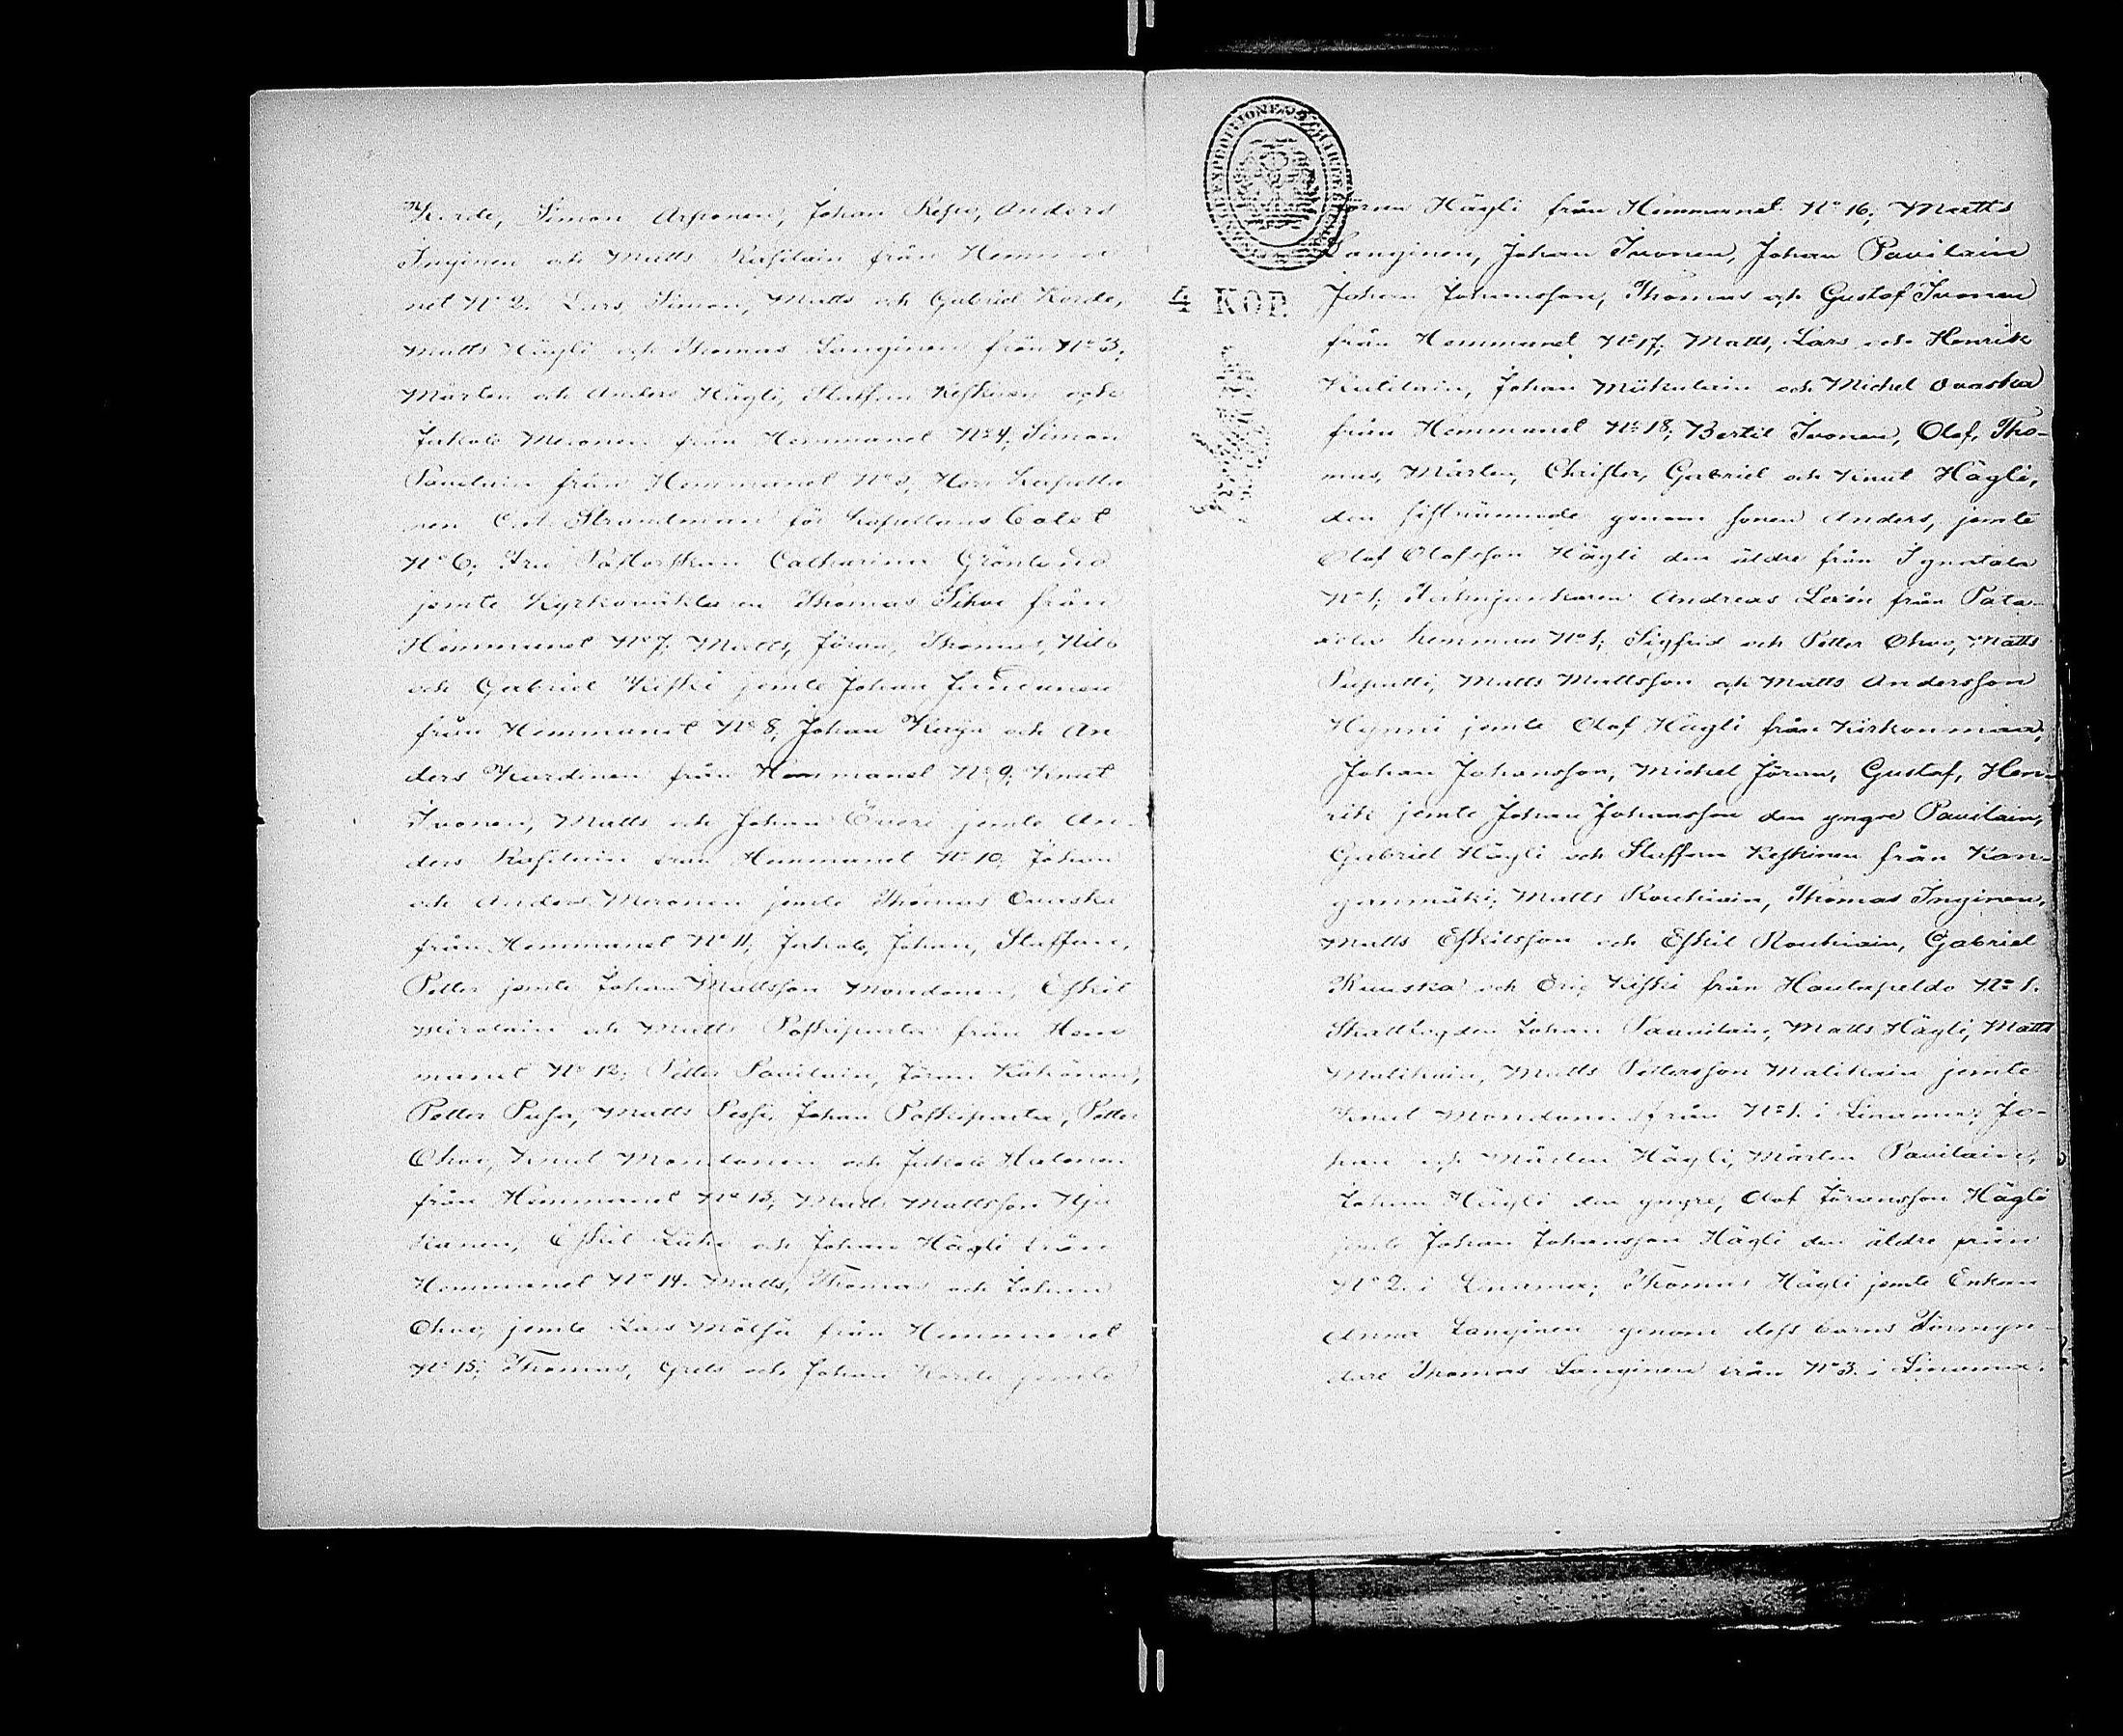 Korde, Simon Arponen, Johan Repo, Anders
Inginen och Matts Rasilain från Hemma-
net No 2. Lars, Simon, Matts och Gabriel Korde,
Matts Hägli och Thomas Langinen från No 3,
Mårten och Anders Hägli, Staffan Keskinen och
Jakob Meronen från Hemmanet No 4, Simon
Pavilain från Hemmanet No 5, Herr Kapella-
nen C. A. Strandman för Kapellans Bolet
No 6; Fru Pastorskan Catharina Grönlund
jemte Kyrkoväktaren Thomas Sihvo från
Hemmanet No 7, Matts, Jöran, Thomas, Nils
och Gabriel Kiski jemte Johan
från Hemmanet No 8, Johan och An
ders från Hemmanet No 9, Knut
Ivonen, Matts och Johan Överi jemte An-
ders Rasilain från Hemmanet No 10, Johan
och Anders Meronen jemte Thomas Ovaska
från Hemmanet No 11, Jakob, Johan, Staffan,
Petter jemte Johan Mattsson Mondonen, Eskil
Mirolain och Matts Poskiparta från Hem
manet No 12; Petter Pavilain, Jöran Kähönen,
Petter Pusa, Matts Pessi, Johan Poskiparta, Petter
Ohvo, Knut Mondonen och Jakob Halonen
från Hemmanet No 13, Matts Mattsson Hju
kanen, Eskil och Johan Hägli från
Hemmanet No 14. Matts, Thomas och Johan
Ohvo, jemte Lars Mölsä från Hemmanet
No 15; Thomas, Grels och Johan Korde jemte
4 KOP.
Jöran Hägli från Hemmanet No 16; Matts
Langinen, Johan Ivonen, Johan Pavilain
Johan Johansson, Thomas och Gustaf Ivonen
från Hemmanet No 17; Matts, Lars och Henrik
Kulilain, Johan Mikulain och Michel Ovaska
från Hemmanet No 18; Bertil Ivonen, Olof, Tho-
mas, Mårten, Christer, Gabriel och Knut Hägli,
den sistnämnde genom sonen Anders, jemte
Olof Olofsson Hägli den äldre från Ignatala
No 1; Andreas från Pata-
hemman No 1; Sigfrid och Petter Ohvo, Matts
Puputti, Matts Mattsson och Matts Andersson
Hynni jemte Olof Hägli från Kirkonmaa,
Johan Johansson, Michel Jöran, Gustaf, Hen-
rik jemte Johan Johansson den yngre Pavilain,
Gabriel Hägli och Staffan Keskinen från Kan-
ganmäki; Matts Rouhiain, Thomas Inginen,
Matts Eskilsson och Eskil Rouhiain, Gabriel
Ruuska och Eric Kiski från Hautapeldo No 1.
Johan Pavilain, Matts Hägli, Matts
Malikain, Matts Pettersson Malikain jemte
Knut Mondonen från No 1. i Linamaa; Jo-
han och Mårten Hägli, Mårten Pavilain,
Johan Hägli den yngre, Olof Jöransson Hägli
jemte Johan Johansson Hägli den äldre från
No 2. i Linamaa; Thomas Hägli jemte Enkan
Anna Langinen genom dess barns Förmyn-
dare Thomas Langinen från No 3. i Linamaa.